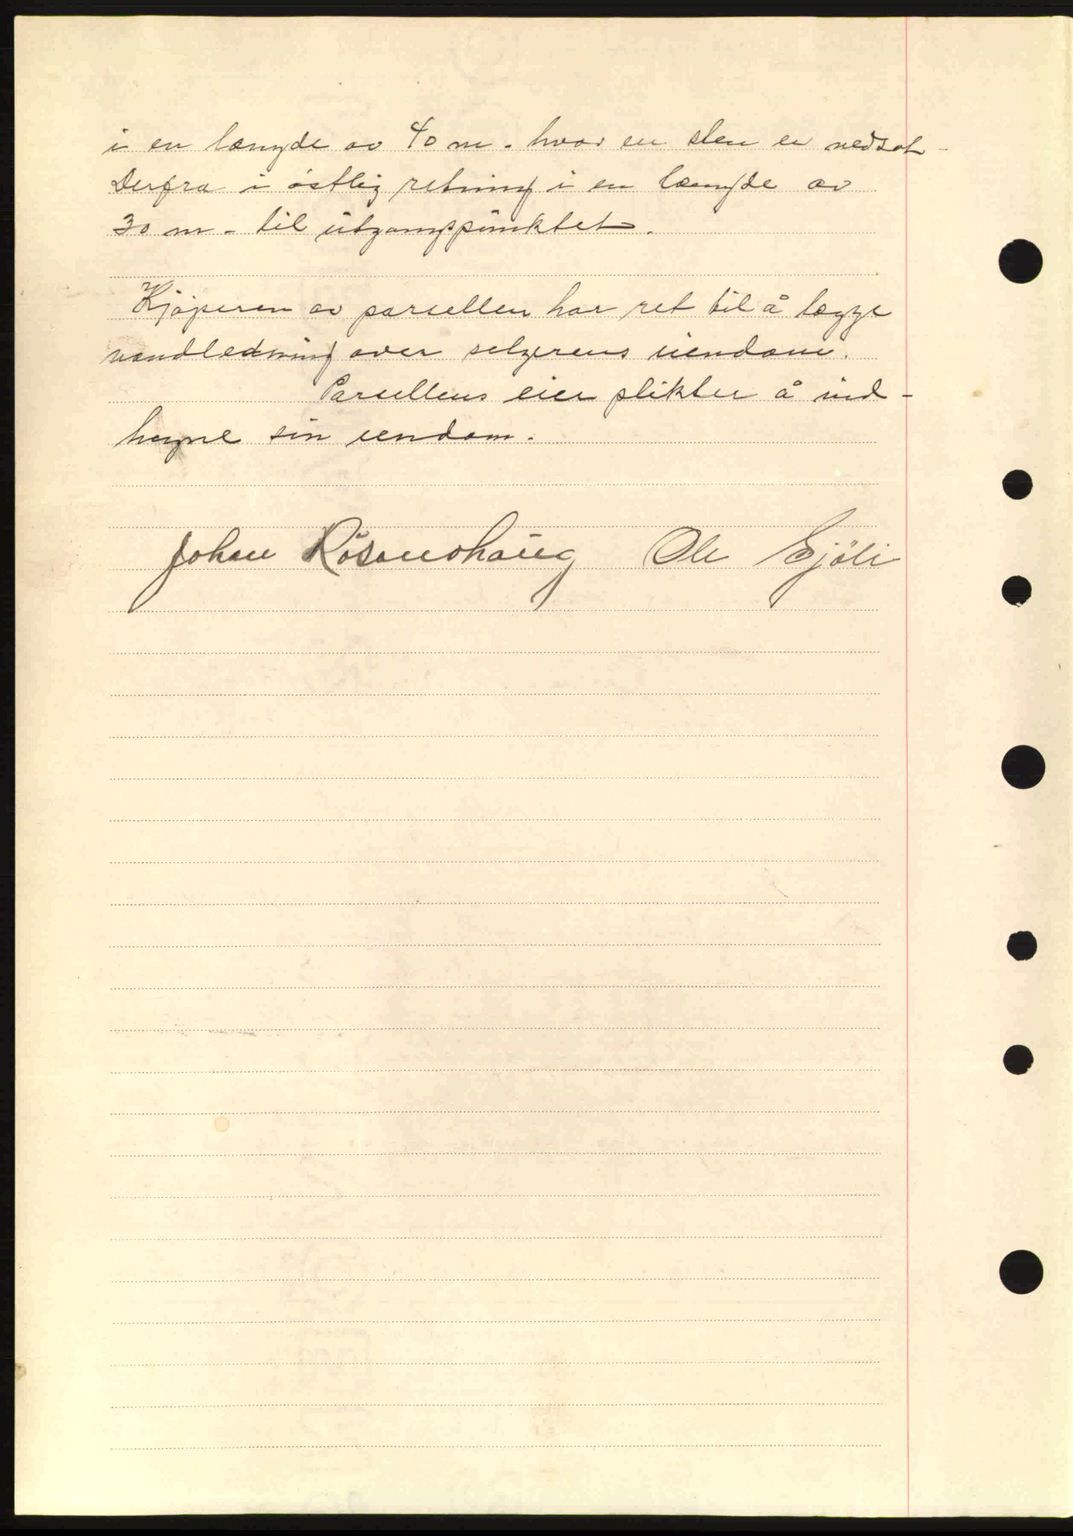 i en længde av 40 m. hvor en sten er nedsat.
Derfra i østlig retning i en længde av
30 m. til utgangspunktet.
Kjøperen av parsellen har ret til å lægge
vandledning over selgerens eiendom.
Parsellens eier plikter å ind-
hegne sin eiendom.
Johan Rosenshaug Ole